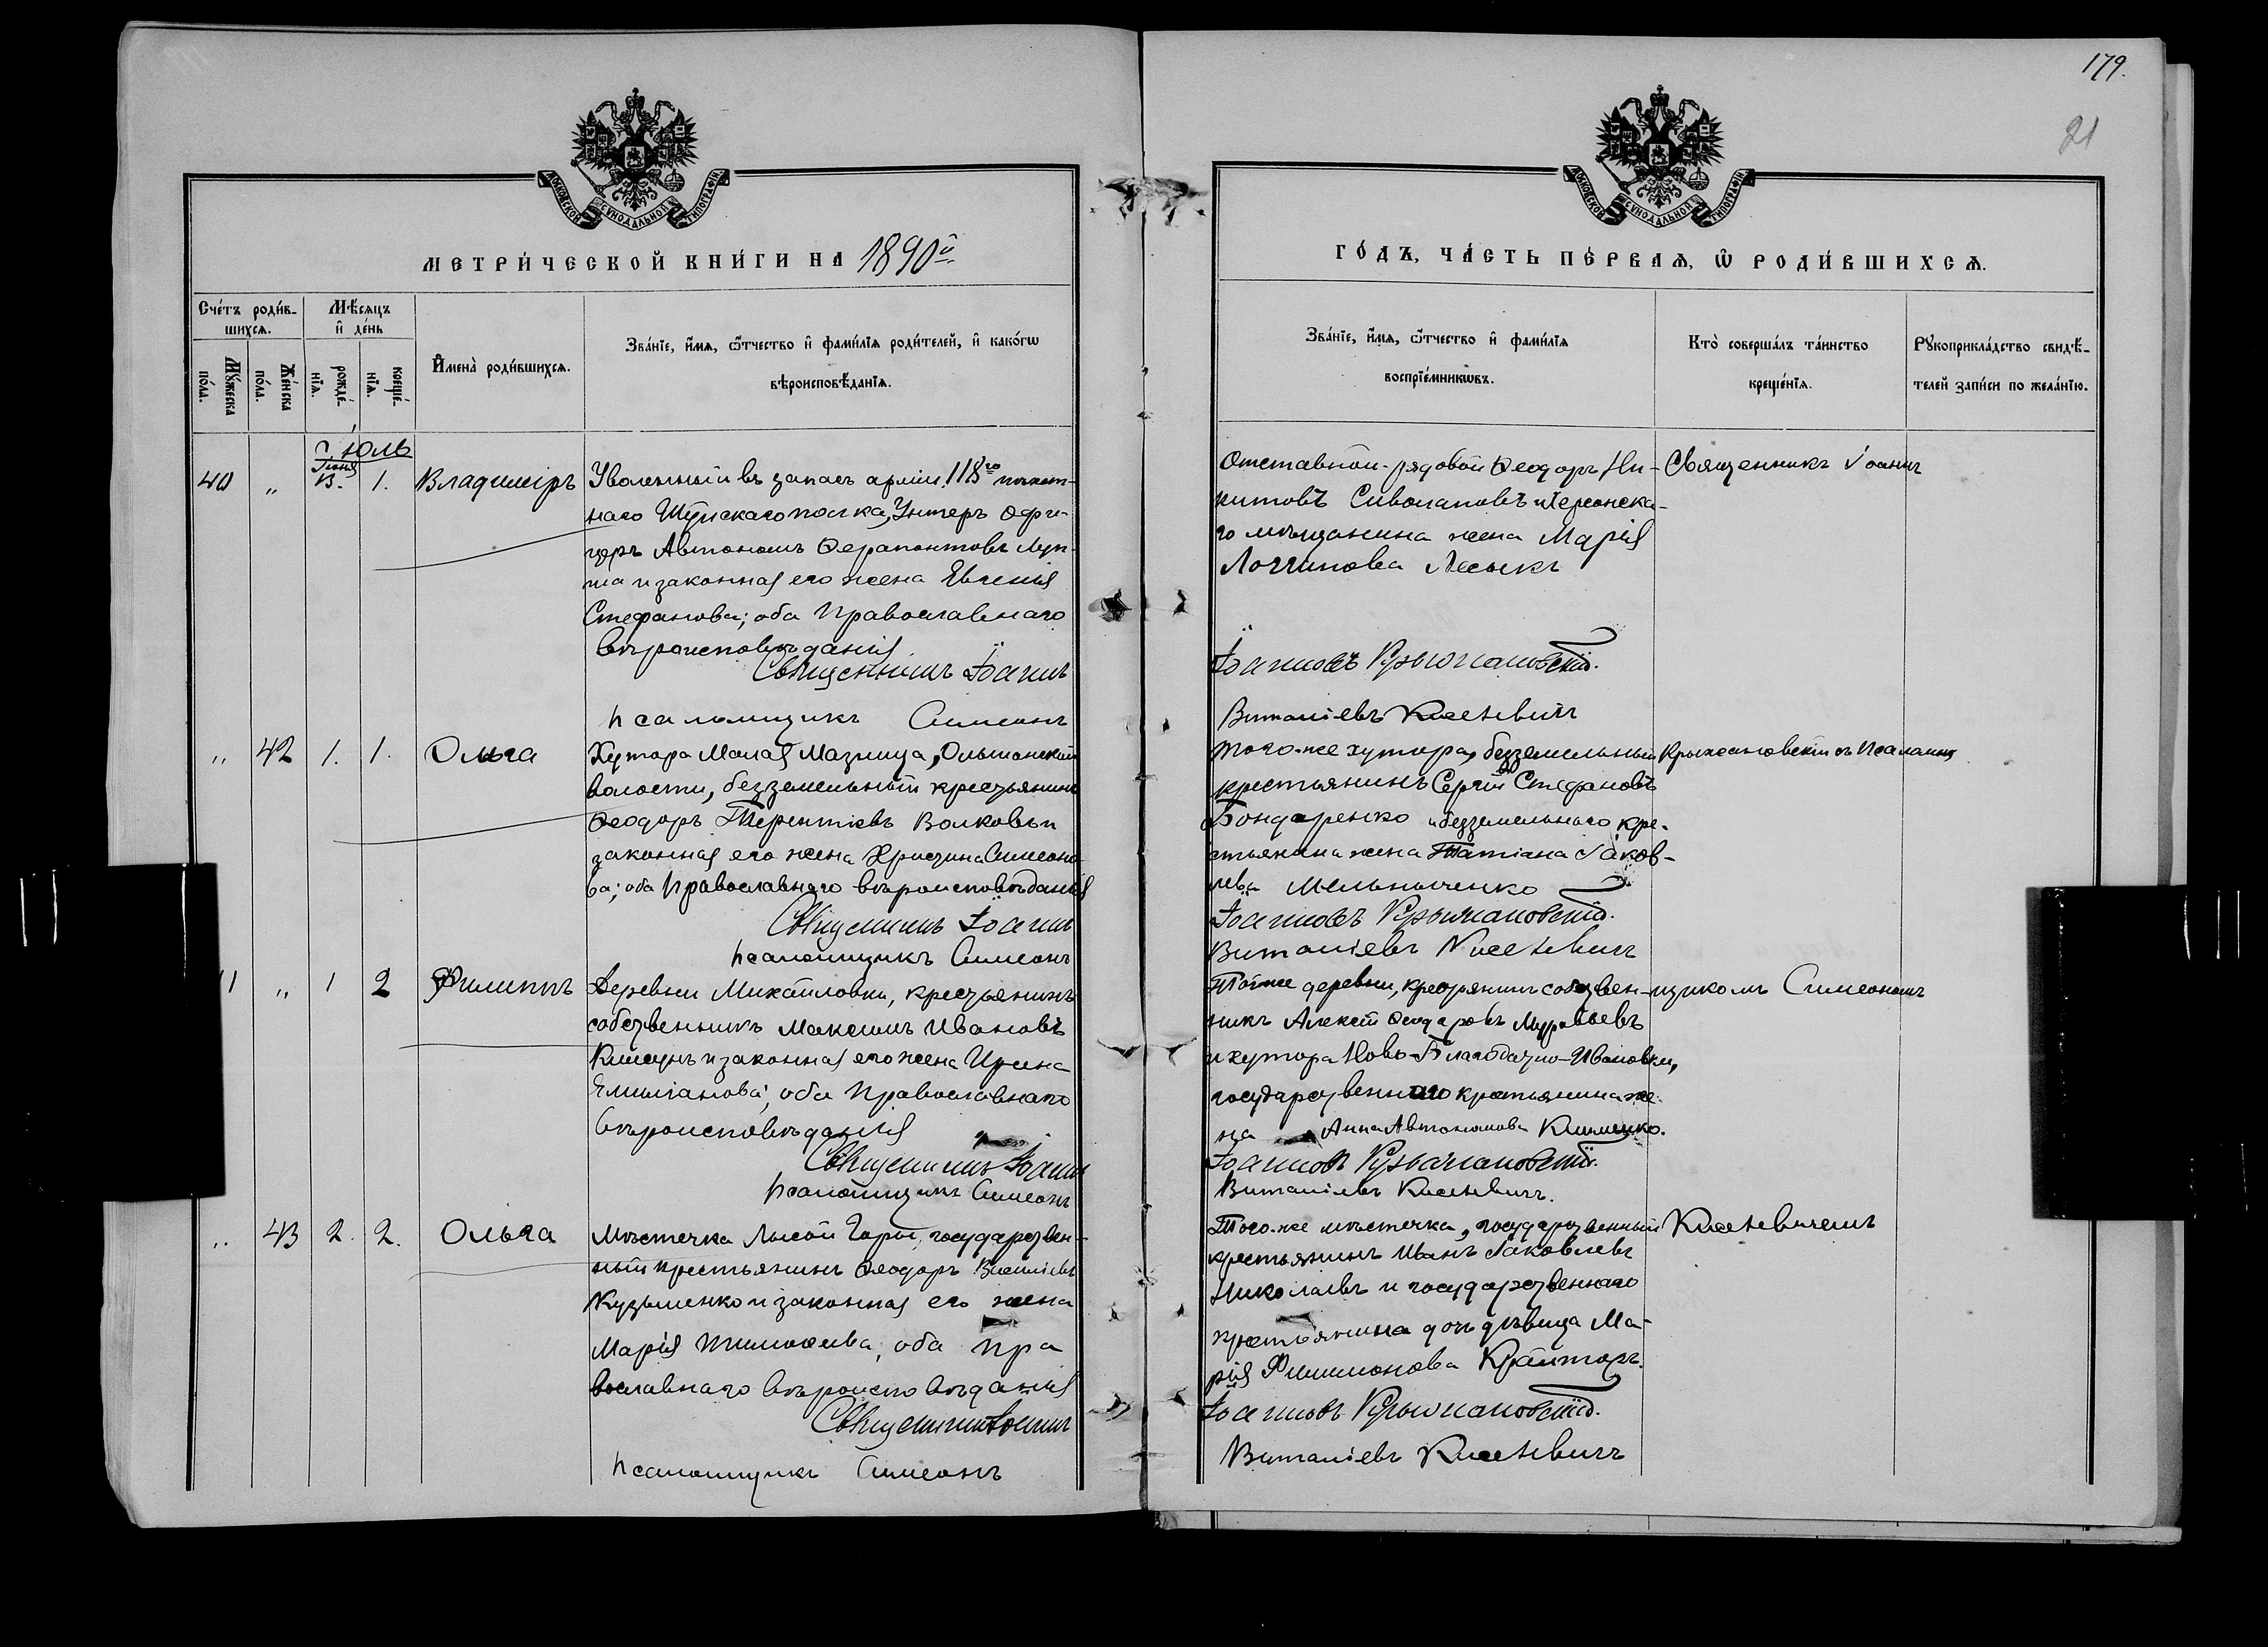 179.
21
МОСКОВСКОЙ СѴНОДАЛЬНОЙ ТИПОГРАФІИ
МОСКОВСКОЙ СѴНОДАЛЬНОЙ ТИПОГРАФІИ
МЕТРИ́ЧЕСКОЙ КНИ́ГИ НА 1890й
ГО́ДЪ, ЧА́СТЬ ПЕ́РВАѦ, Ѡ҆ РОДИ́ВШИХСѦ.
Сче́тъ роди́в-
шихсѧ.
Мѣ́сѧцъ
и҆ де́нь
Мꙋ́жеска
по́ла.
Же́нска
по́ла.
рожде́-
нїѧ.
креще́-
нїѧ.
И҆мена̀ роди́вшихсѧ.
Зва́нїе, и҆́мѧ, ѻ҆́тчество и҆ фами́лїѧ роди́телей, и҆ како́гѡ
вѣроисповѣ́данїѧ.
Зва́нїе, и҆́мѧ, ѻ҆́тчество и҆ фами́лїѧ
воспрїе́мникѡвъ.
Кто̀ соверша́лъ та́инство
креще́нїѧ.
Рꙋкоприкла́дство свидѣ́-
телей за́писи по жела́нїю.
Іюль
Іюня
40 „ 13. 1. Владиміръ Уволенный въ запасъ арміи 118го пѣхот-
наго Шуйскаго полка, Унтеръ Офи-
церъ Автономъ Ѳерапонтовъ
и законная его жена Евгенія
Стефанова; оба Православнаго
вѣроисповѣданія.
Священникъ Іоаннъ
Псаломщикъ Симеонъ
Отставной рядовой Ѳеодоръ Ни-
китовъ и Херсонска-
го мѣщанина жена Марія
Логгинова
Іоанновъ Крыжановскій.
Виталіевъ Киселевичъ
Священникъ Іоаннъ
„ 42 1. 1. Ольга Хутора Малая Мазница, Ольшанской
волости, безземельный крестьянинъ
Ѳеодоръ Терентіевъ Волковъ и
законная его жена Христина Симеоно-
ва; оба Православнаго вѣроисповѣданія
Священникъ Іоаннъ
Псаломщикъ Симеонъ
Того-же хутора, безземельный
крестьянинъ Сергій Стефановъ
Бондаренко и безземельнаго кре-
стьянина жена Татіана Іаков-
лева Мельниченко
Іоанновъ Крыжановскій.
Виталіевъ Киселевичъ
Крыжановскій съ Псалом-
1 „ 1 2 Филиппъ Деревни Михайловки, крестьянинъ
собственникъ Максимъ Ивановъ
и законная его жена Ирина
Емиліанова; оба Православнаго
вѣроисповѣданія
Священникъ Іоаннъ
Псаломщикъ Симеонъ
Той-же деревни, крестьянинъ собствен-
никъ Алексій Ѳеодоровъ Муравьевъ
и хутора Ново-Благодатно-Ивановки,
государственнаго крестьянина же-
на Анна Автономова Клименко.
Іоанновъ Крыжановскій.
Виталіевъ Киселевичъ.
щикомъ Симеономъ
„ 43 2. 2. Ольга Мѣстечка Лысой Горы, государствен-
ный крестьянинъ Ѳеодоръ Василіевъ
Кузьменко и законная его жена
Марія Тимоѳеева, оба Пра
вославнаго вѣроисповѣданія
Священникъ Іоаннъ
Псаломщикъ Симеонъ
Того-же мѣстечка, государственный
крестьянинъ Иванъ Іаковлевъ
Николаевъ и государственнаго
крестьянина дочь дѣвица Ма-
рія Филимонова
Іоанновъ Крыжановскій.
Виталіевъ Киселевичъ
Киселевичемъ